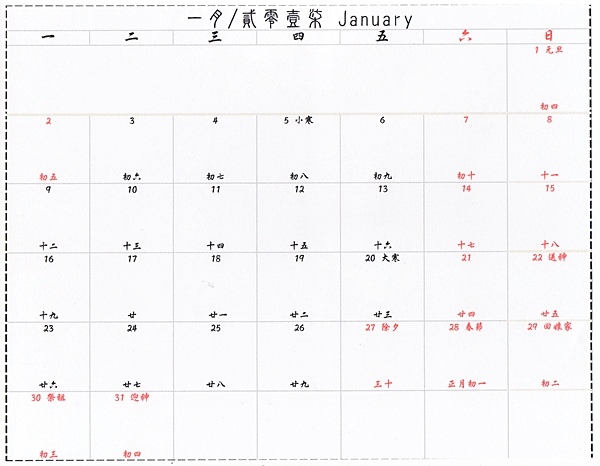 一月/貳零壹柒 January
一 二 三 四 五 六 日
1 元旦
初四
2 3 4 5 小寒 6 7 8
初五 初六 初七 初八 初九 初十 十一
9 10 11 12 13 14 15
十二 十三 十四 十五 十六 十七 十八
16 17 18 19 20 大寒 21 22 送神
十九 廿 廿一 廿二 廿三 廿四 廿五
23 24 25 26 27 除夕 28 春節 29 回娘家
廿六 廿七 廿八 廿九 三十 正月初一 初二
30 祭祖 31 迎神
初三 初四